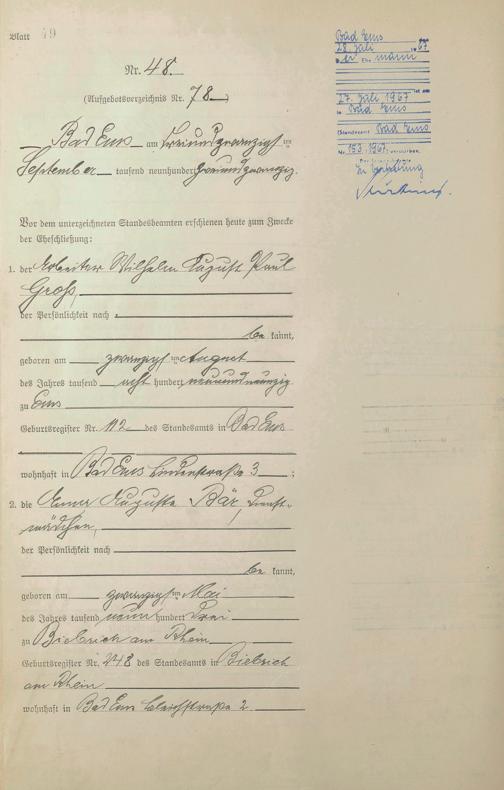 Blatt 49
Nr. 48.
(Aufgebotsverzeichnis Nr. 78.)
Bad Ems am dreiundzwanzigsten
September tausend neunhundert
Vor dem unterzeichneten Standesbeamten erschienen heute zum Zwecke
der Eheschließung:
1. der Arbeiter Wilhelm August Paul
Groß,
der Persönlichkeit nach
be kannt,
geboren am zwanzigsten August
des Jahres tausend acht hundert neunundneunzig
zu Ems
Geburtsregister Nr. 112 des Standesamts in Bad Ems
wohnhaft in Bad Ems Lindenstraße 3 ;
2. die Anna Auguste Bär, Dienst-
mädchen,
der Persönlichkeit nach
be kannt,
geboren am zwanzigsten Mai
des Jahres tausend neun hundert drei
zu Biebrich am Rhein
Geburtsregister Nr. 248 des Standesamts in Biebrich
am Rhein
wohnhaft in Bad Ems Bleichstraße 2
Bad Ems
28. Juli 1967
Ehemann
27. Juli 1967
in Bad Ems
(Standesamt Bad Ems
Nr. 153/1967
In Vertretung